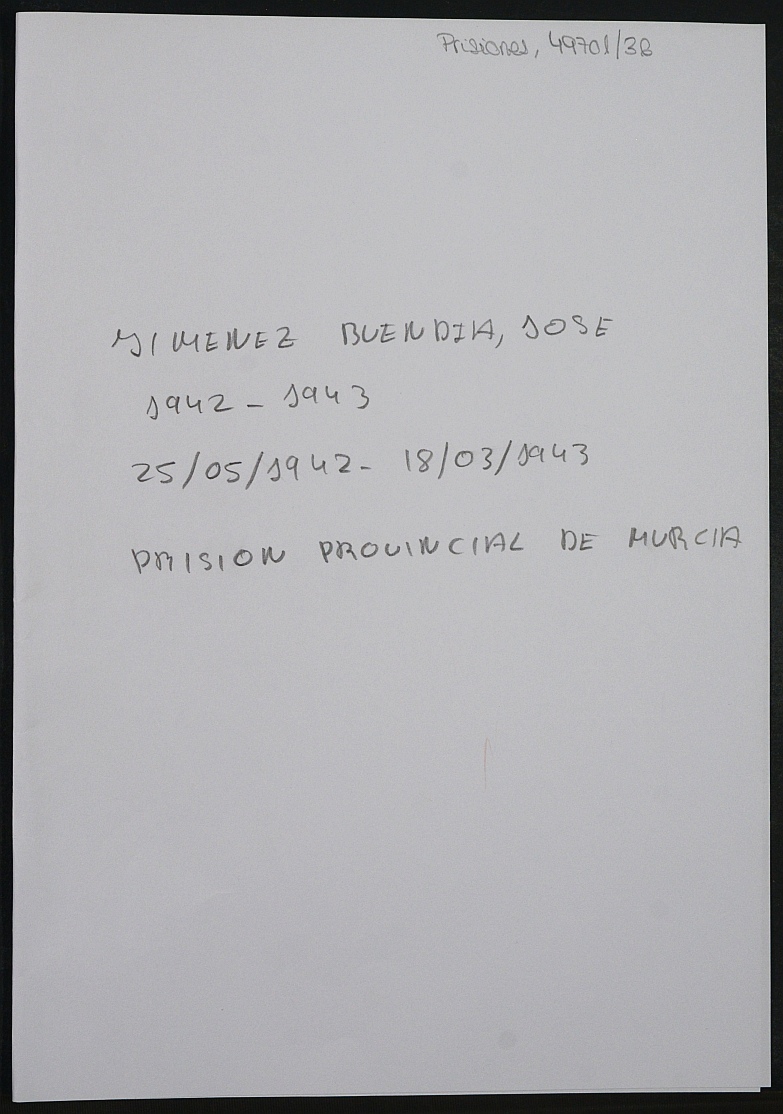 Prisiones, 49701/38
JIMENEZ BUENDIA, JOSE
1942 - 1943
25/05/1942 - 18/03/1943
PRISION PROVINCIAL DE MURCIA